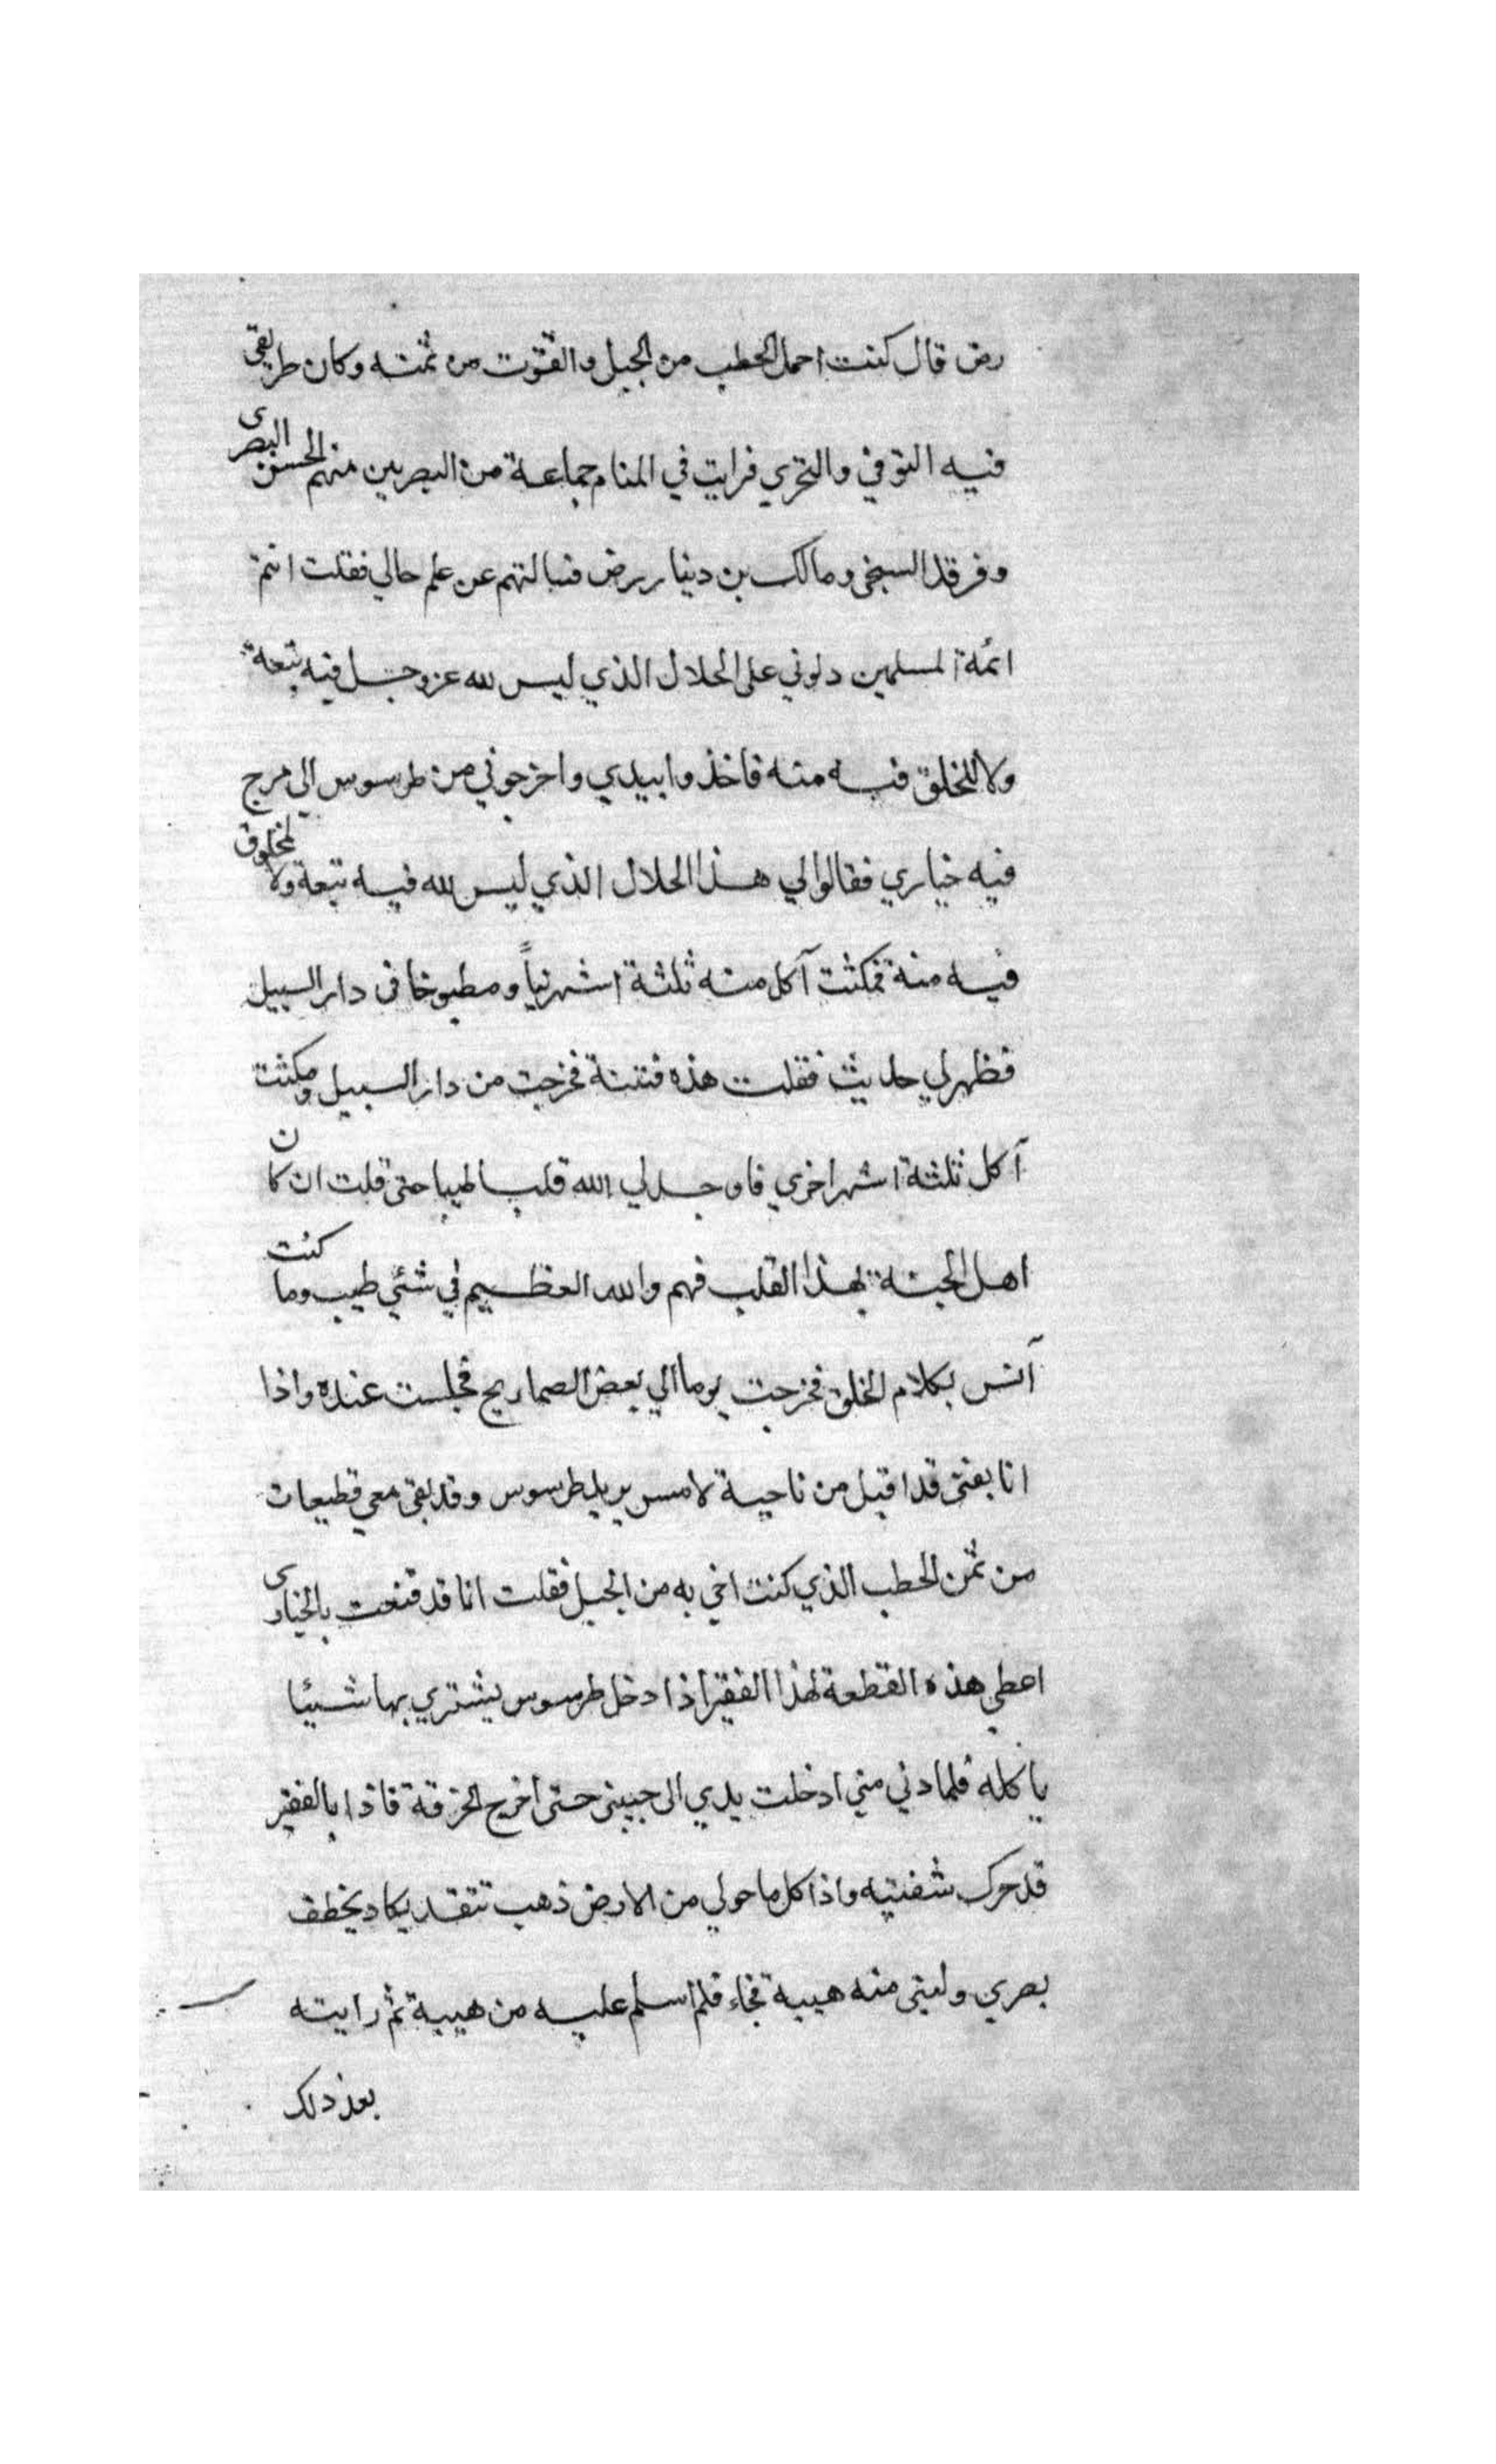 رض قال كنت احمل الحطب من الجبل والقوت من ثمنه وكان طريقي
فيه التوقي والتحري فرايت في المنام جماعة من البصريين منهم الحسن البصرى
وفرقد السبخي ومالك بن دينار رض فسالتهم عن علم حالي فقلت انتم
ائمة المسلمين دلوني على الحلال الذي ليس لله عز وجل فيه تبعة
ولا للخلق فيه منه فاخذوا بيدي واخرجوني من طرسوس الى مرج
فيه خبازي فقالوا لي هذا الحلال الذي ليس لله فيه تبعة ولا لمخلوق
فيه منة فمكثت آكل منه ثلثة اشهر نياً ومطبوخا فى دار السبيل
فظهر لي حديث فقلت هذه فتنة فخرجت من دار السبيل ومكثت
آكل ثلثة اشهر اخري فاوجد لي الله قلبا طيبا حتى قلت ان كان
اهل الجنة بهذا القلب فهم والله العظيم في شئي طيب وما كنت
آنس بكلام الخلق فخرجت يوما الي بعض الصماريج فجلست عنده واذا
انا بفتى قد اقبل من ناحية لامس يريد طرسوس وقد بقى معي قطيعات
من ثمن الحطب الذي كنت اخي به من الجبل فقلت انا قد قنعت بالخبازى
اعطي هذه القطعة لهذا الفقير اذا دخل طرسوس يشتري بها شيئا
ياكله فلما دني مني ادخلت يدي الى جيبى حتى اخرج الخرقة فاذا بالفقير
قد حرك شفتيه واذا كل ما حولي من الارض ذهب تتقد يكاد يخطف
بصري ولبنى منه هيبة فجاء فلم اسلم عليه من هيبة ثم رايته
بعد ذلك